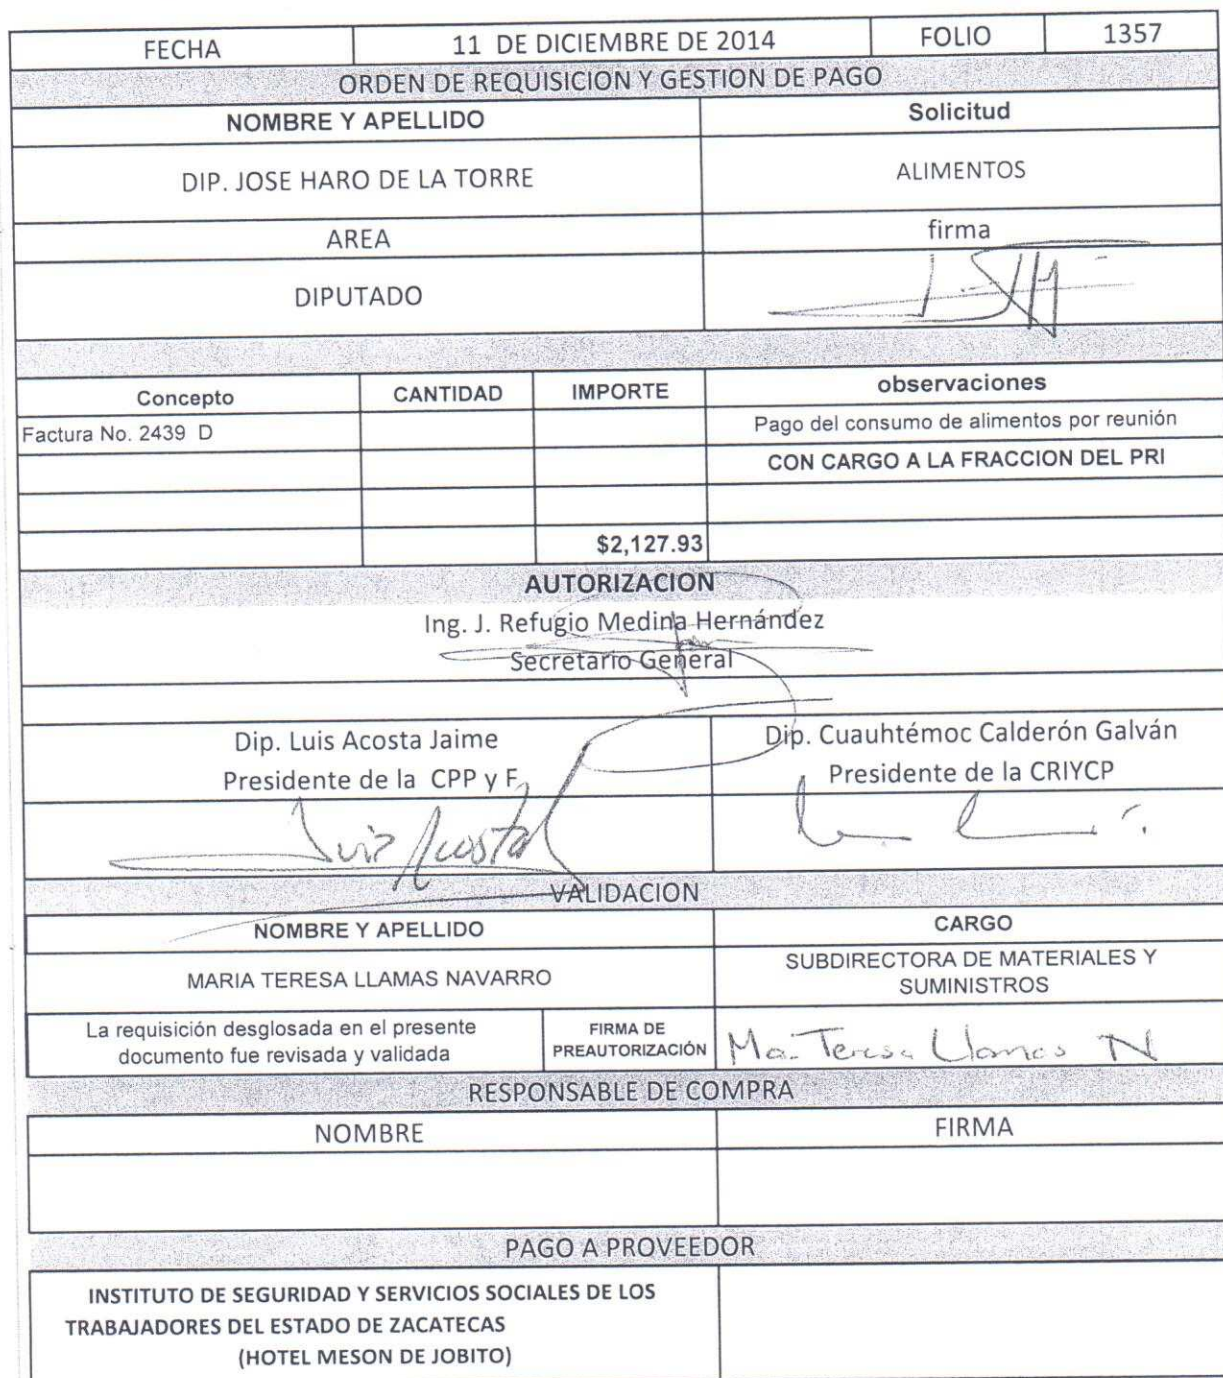 FECHA 11 DE DICIEMBRE DE 2014 FOLIO 1357
ORDEN DE REQUISICION Y GESTION DE PAGO
NOMBRE Y APELLIDO Solicitud
DIP. JOSE HARO DE LA TORRE ALIMENTOS
AREA firma
DIPUTADO
Concepto CANTIDAD IMPORTE observaciones
Factura No. 2439 D Pago del consumo de alimentos por reunión
CON CARGO A LA FRACCION DEL PRI
$2,127.93
AUTORIZACION
Ing. J. Refugio Medina Hernández
Secretario General
Dip. Luis Acosta Jaime Dip. Cuauhtémoc Calderón Galván
Presidente de la CPP y F Presidente de la CRIYCP
Luis Acosta
VALIDACION
NOMBRE Y APELLIDO CARGO
MARIA TERESA LLAMAS NAVARRO SUBDIRECTORA DE MATERIALES Y
SUMINISTROS
La requisición desglosada en el presente FIRMA DE
documento fue revisada y validada PREAUTORIZACIÓN Ma. Teresa Llamas N
RESPONSABLE DE COMPRA
NOMBRE FIRMA
PAGO A PROVEEDOR
INSTITUTO DE SEGURIDAD Y SERVICIOS SOCIALES DE LOS
TRABAJADORES DEL ESTADO DE ZACATECAS
(HOTEL MESON DE JOBITO)